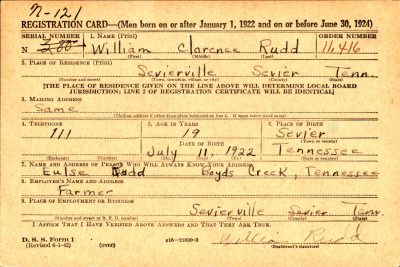 N-121
REGISTRATION CARD—(Men born on or after January 1, 1922 and on or before June 30, 1924)
SERIAL NUMBER 1. NAME (Print) ORDER NUMBER
N 300 William Clarence Rudd 11416
(First) (Middle) (Last)
2. PLACE OF RESIDENCE (Print)
Sevierville Sevier Tenn.
(Number and street) (Town, township, village, or city) (County) (State)
[THE PLACE OF RESIDENCE GIVEN ON THE LINE ABOVE WILL DETERMINE LOCAL BOARD
JURISDICTION; LINE 2 OF REGISTRATION CERTIFICATE WILL BE IDENTICAL]
3. MAILING ADDRESS
Same
[Mailing address if other than place indicated on line 2. If same insert word same]
4. TELEPHONE 5. AGE IN YEARS 6. PLACE OF BIRTH
111 19 Sevier
DATE OF BIRTH (Town or county)
July 11, 1922 Tennessee
(Exchange) (Number) (Mo.) (Day) (Yr.) (State or country)
7. NAME AND ADDRESS OF PERSON WHO WILL ALWAYS KNOW YOUR ADDRESS
Rudd Boyds Creek, Tennessee
8. EMPLOYER'S NAME AND ADDRESS
Farmer
9. PLACE OF EMPLOYMENT OR BUSINESS
Sevierville Sevier Tenn.
(Number and street or R. F. D. number) (Town) (County) (State)
I AFFIRM THAT I HAVE VERIFIED ABOVE ANSWERS AND THAT THEY ARE TRUE.
D. S. S. Form 1
(Revised 6-1-42) (over) William Rudd
(Registrant's signature)